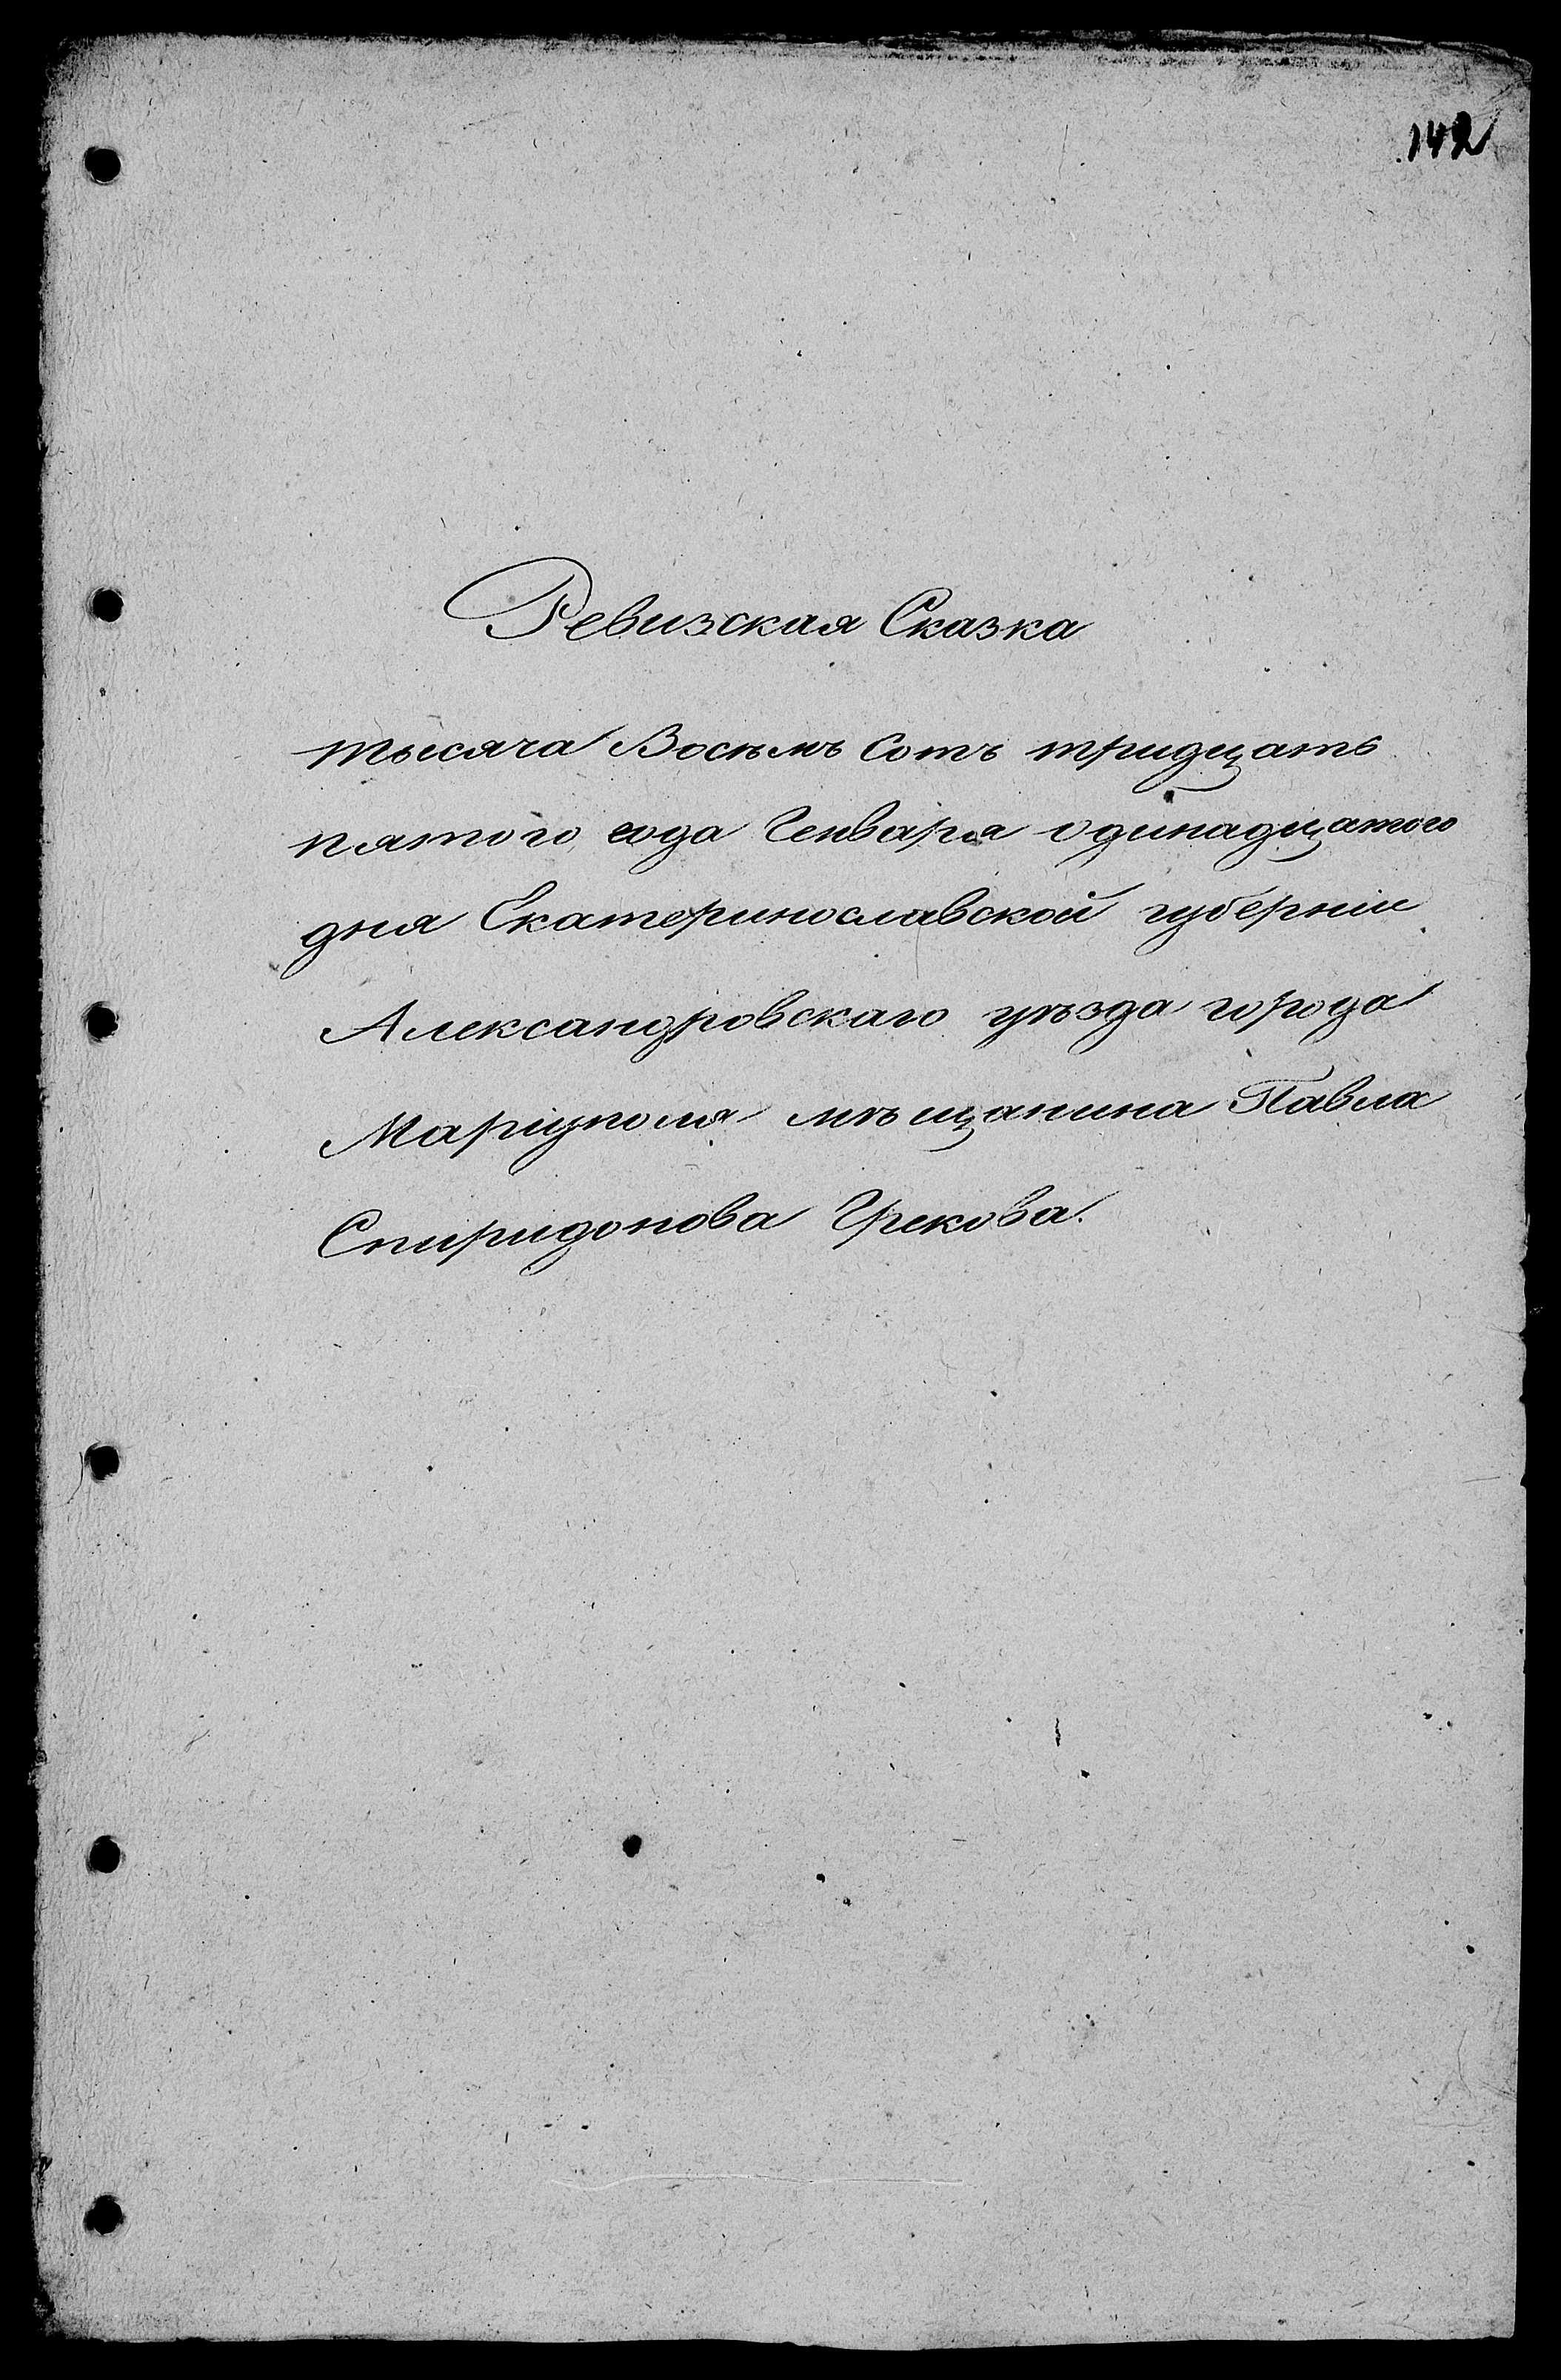 142
Ревизская Сказка
тысяча Восемь Сотъ тридцать
пятого года Генваря одинадцатого
дня Екатеринославской губерніи
Александровскаго уѣзда города
Маріуполя мѣщанина Павла
Спиридонова Грекова.